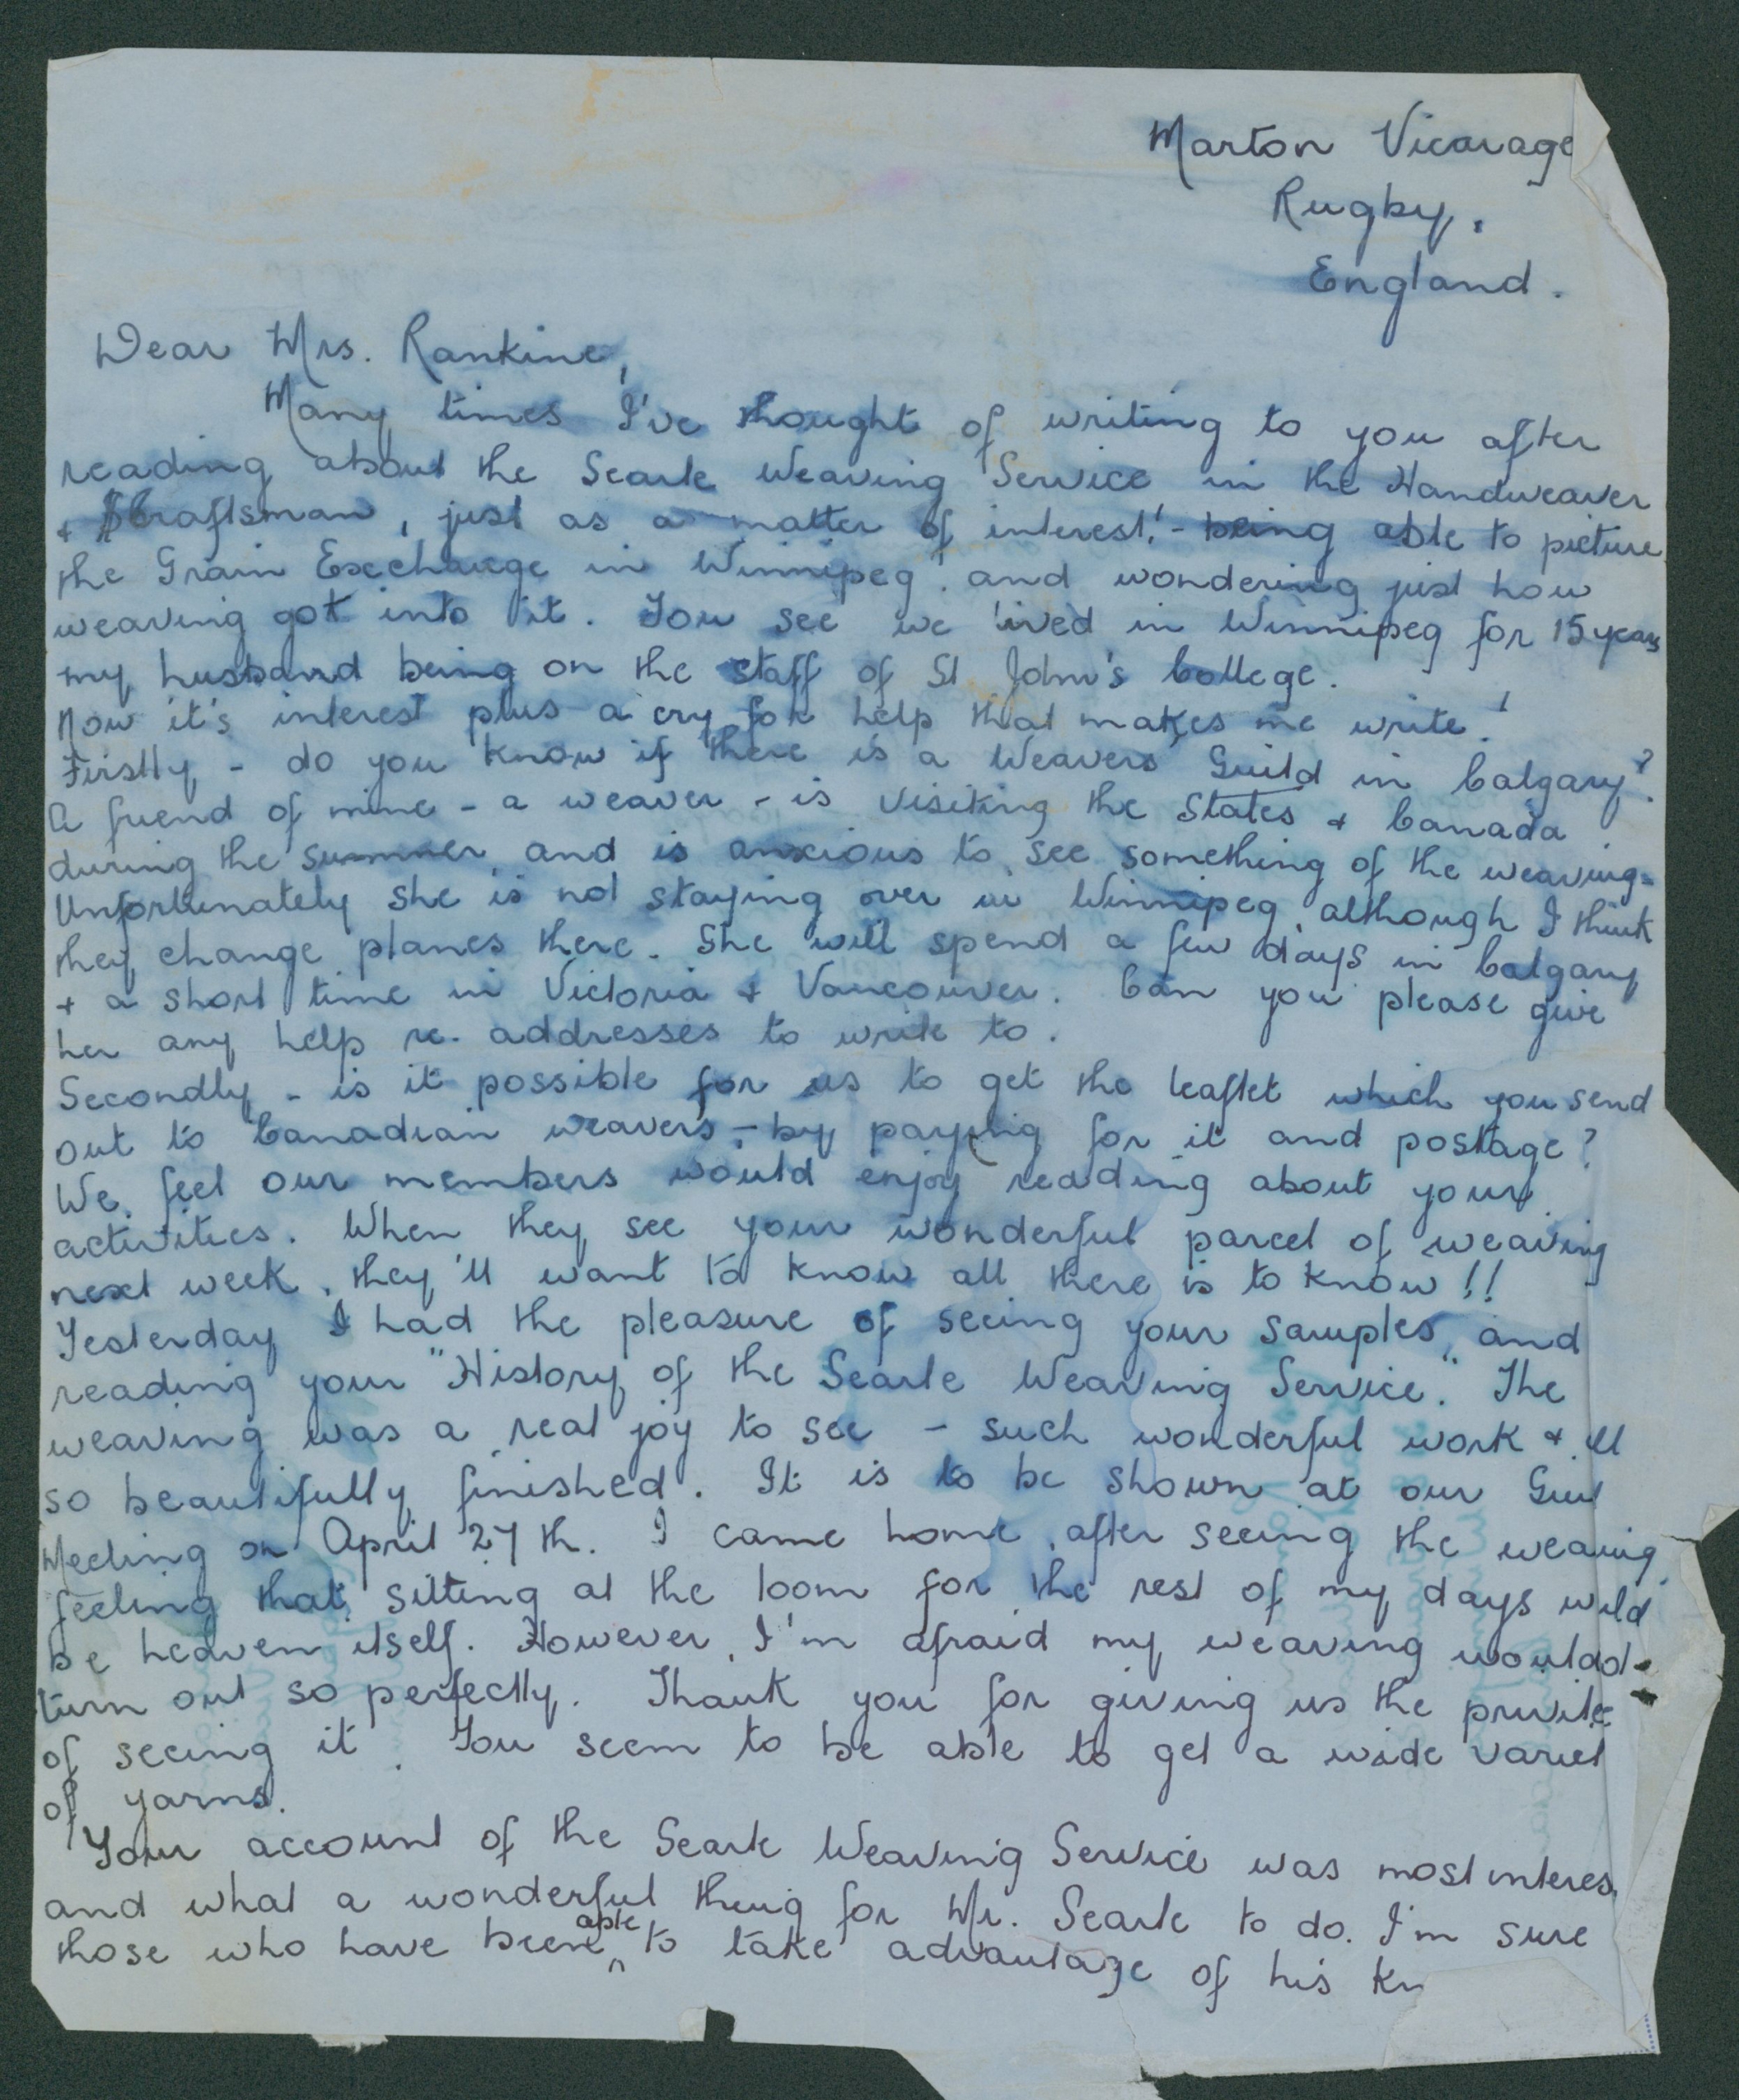 Marton Vicarage
Rugby,
England.
Dear Mrs. Rankine,
Many times I've thought of writing to you after
reading about the Searle Weaving Service in the Handweaver
+ Craftsman, just as a matter of interest! - being able to picture
the Grain Exechange in Winnipeg, and wondering just how
weaving got into it. You see we lived in Winnipeg for 15 years
my husband being on the staff of St John's College.
Now it's interest plus a cry for help that makes me write!
Firstly - do you know if there is a Weavers' Guild in Calgary?
A friend of mine - a weaver - is visiting the States + Canada
during the summer and is anxious to see something of the weaving-
Unfortunately she is not staying over in Winnipeg, although I think
they change planes there. She will spend a few days in Calgary
+ a short time in Victoria + Vancouver. Can you please give
her any help re. addresses to write to.
Secondly - is it possible for us to get the leaflet which you send
out to Canadian weavers, - by paying for it and postage?
We feel our members would enjoy reading about your
activities. When they see your wonderful parcel of weaving
next week, they'll want to know all there is to know!!
Yesterday I had the pleasure of seeing your samples, and
reading your "History of the Searle Weaving Service." The
weaving was a real joy to see - such wonderful work + all
so beautifully finished. It is to be shown at our Guil
Meeting on April 27th. I came home, after seeing the weaving,
feeling that sitting at the loom for the rest of my days wuld
be heaven itself. However, I'm afraid my weaving wouldd
turn out so perfectly. Thank you for giving us the privile
of seeing it. You seem to be able to get a wide variet
of yarns.
Your account of the Searle Weaving Service was most interes
and what a wonderful thing for Mr. Searle to do. I'm sure
those who have been able to take advantage of his kn